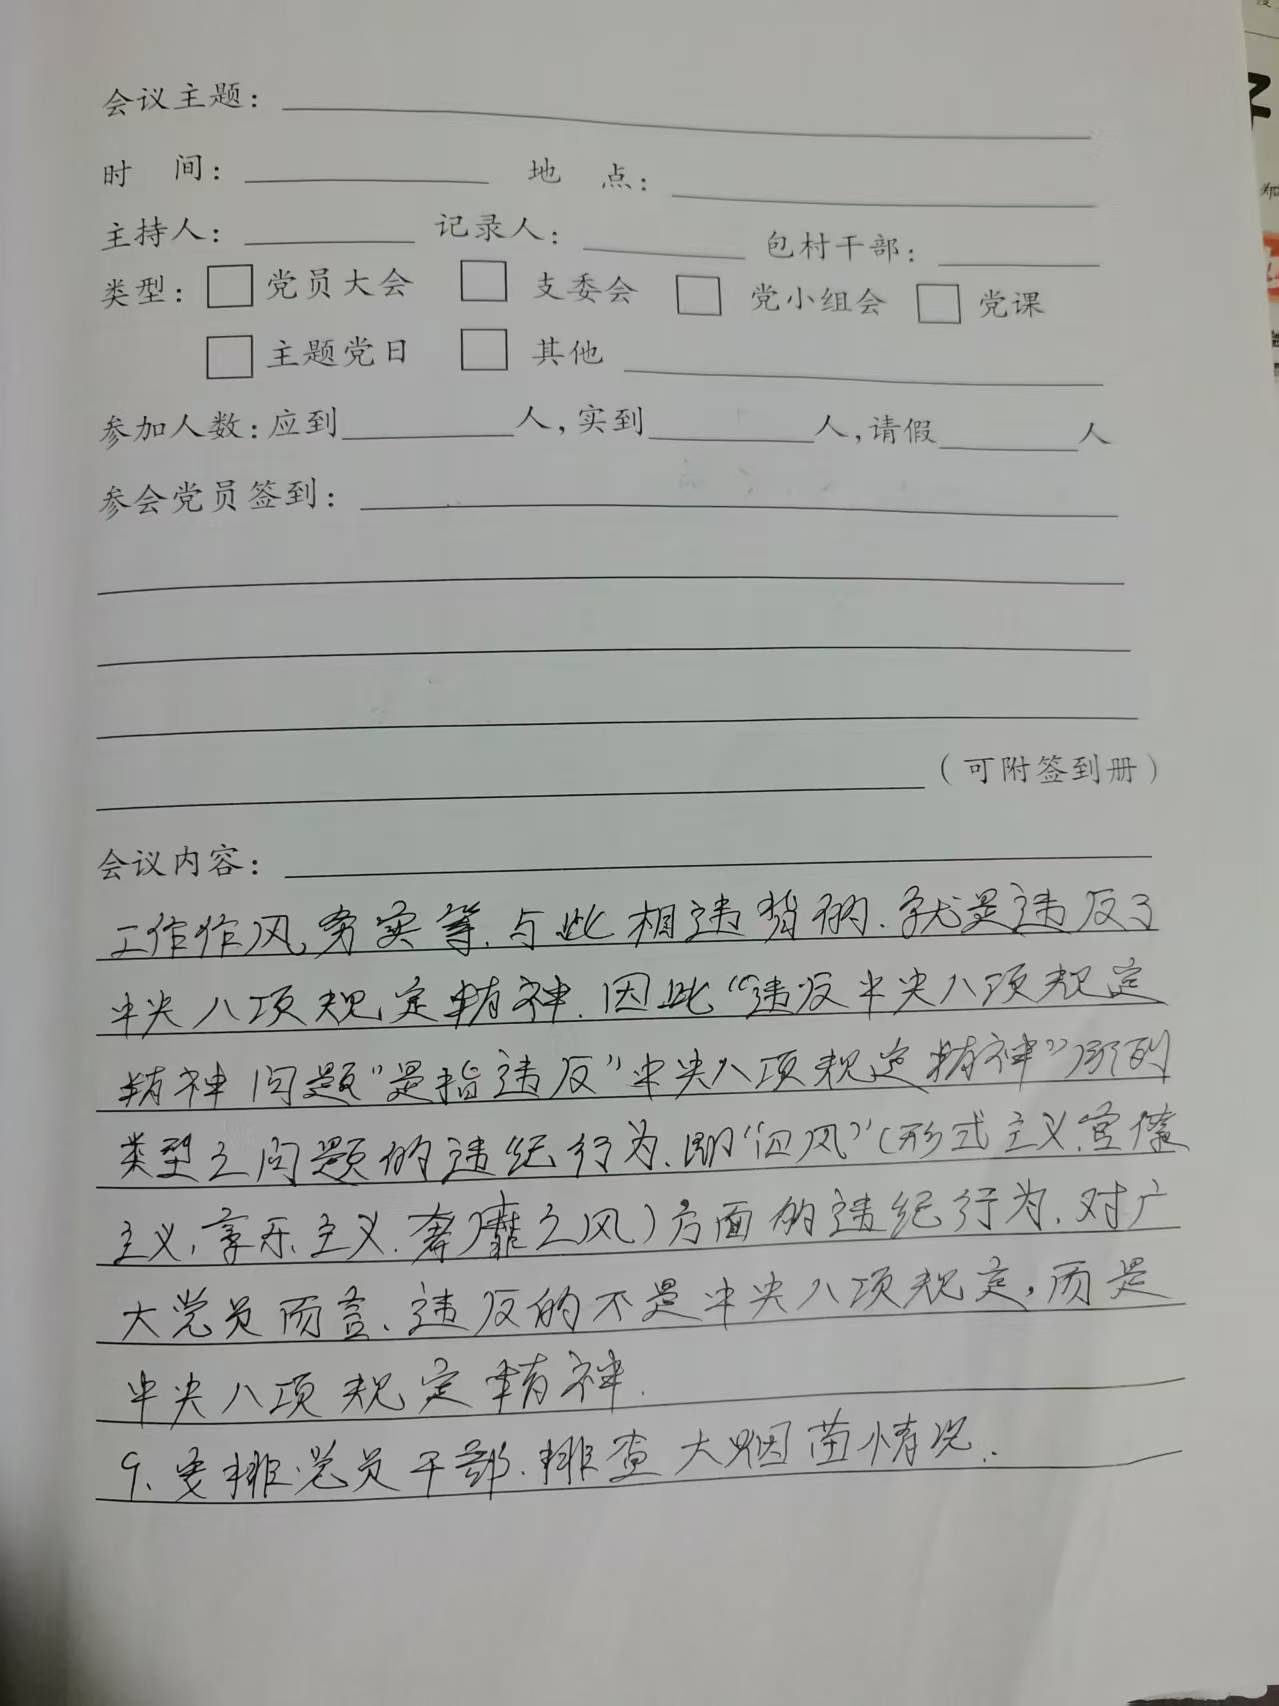 会议主题：
时 间： 地 点：
主持人： 记录人： 包村干部：
类型：□党员大会 □支委会 □党小组会 □党课
□主题党日 □其他
参加人数：应到 人，实到 人，请假 人
参会党员签到：
（可附签到册）
会议内容：
工作作风务实等、与此相违背的、就是违反了
中央八项规定精神. 因此“违反中央八项规定
精神问题"是指违反”中央八项规定精神”所列
类型之问题的违纪行为、即“四风”（形式主义、官僚
主义、享乐主义、奢靡之风）方面的违纪行为、对广
大党员而言、违反的不是中央八项规定，而是
中央八项规定精神.
9、安排党员干部、排查大烟苗情况.